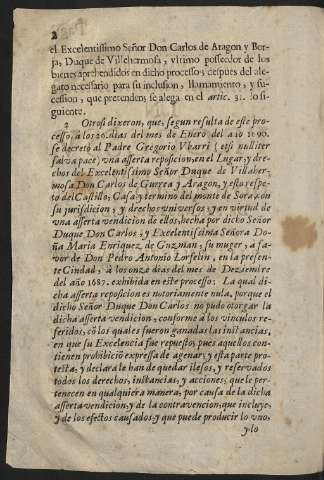 2
el Excelentissimo Señor Don Carlos de Aragon y Bor-
ja, Duque de Villehermosa, vltimo posseedor de los
bienes aprehendidos en dicho processo; y despues del ale-
gato necessario para su inclusion, llamamiento, y su-
cession, que pretenden, se alega en el artic. 31. lo si-
guiente.
2 Otrosi dixeron, que, segun resulta de este pro-
cesso, à los 20. dias del mes de Enero del año 1690.
se decretò al Padre Gregorio Ybarri (etsi nulliter
salva pace) vna asserta reposicion, en el Lugar, y dre-
chos del Excelentissimo Señor Duque de Villaher-
mosa Don Carlos de Gurrea y Aragon, y esto respe-
to del Castillo, Casa y termino del monte de Sora, con
su jurisdicion, y drechos vniversos, y en virtud de
vna asserta vendicion de ellos, hecha por dicho Señor
Duque Don Carlos, y Excelentissima Señora Do-
ña Maria Enriquez de Guzman, su muger, a fa-
vor de Don Pedro Antonio Lorfelin, en la presen-
te Ciudad, à los onze dias del mes de Deziembre
del año 1687. exhibida en este processo: La qual di-
cha asserta reposicion es notoriamente nula, porque el
dicho Señor Duque Don Carlos no pudo otorgar la
dicha asserta vendicion, conforme à los vinculos re-
feridos, cõ los quales fueron ganadas las instancias,
en que su Excelencia fue repuesto, pues aquellos con-
tienen prohibiciõ expressa de agenar; y esta parte pro-
testa, y declara le han de quedar ilesos, y reservados
todos los derechos, instancias, y acciones, que le per-
tenecen en qualquiera manera, por causa de la dicha
asserta vendicion, y de la contravencion, que incluye,
y de los efectos causados, y que puede producir lo vno,
y lo